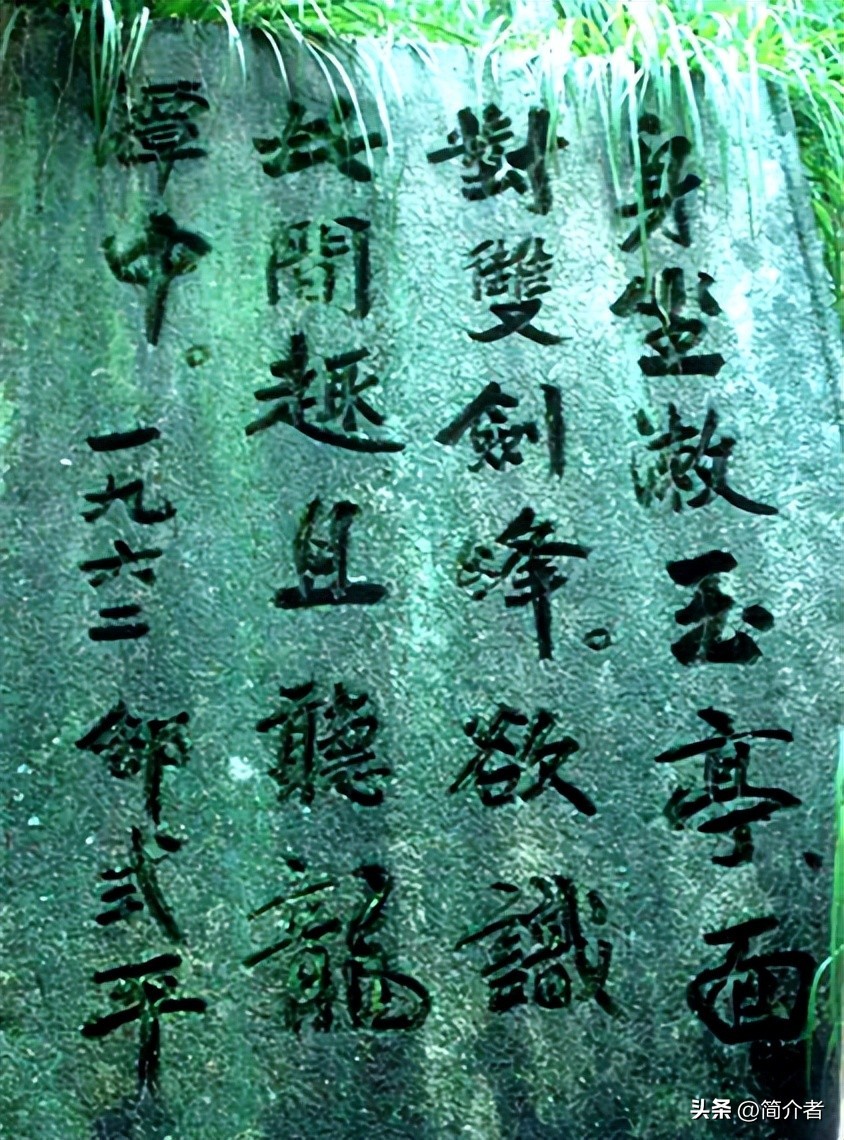 身坐漱玉亭、面
對雙劍峰。欲識
此間趣且聽龍
潭中。
一九六二 邵式平
头条 @简介者